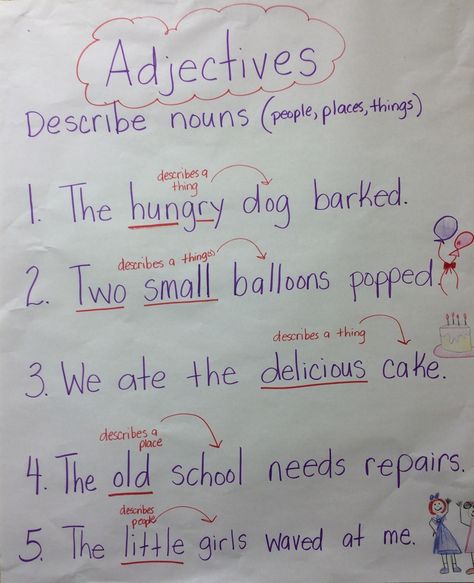 Adjectives
Describe nouns (people, places, things)
describes a
thing
1. The hungry dog barked.
describes a thing(s)
2. Two small balloons popped.
describes a thing
3. We ate the delicious cake.
describes a
place
4. The old school needs repairs.
describes
people
5. The little girls waved at me.